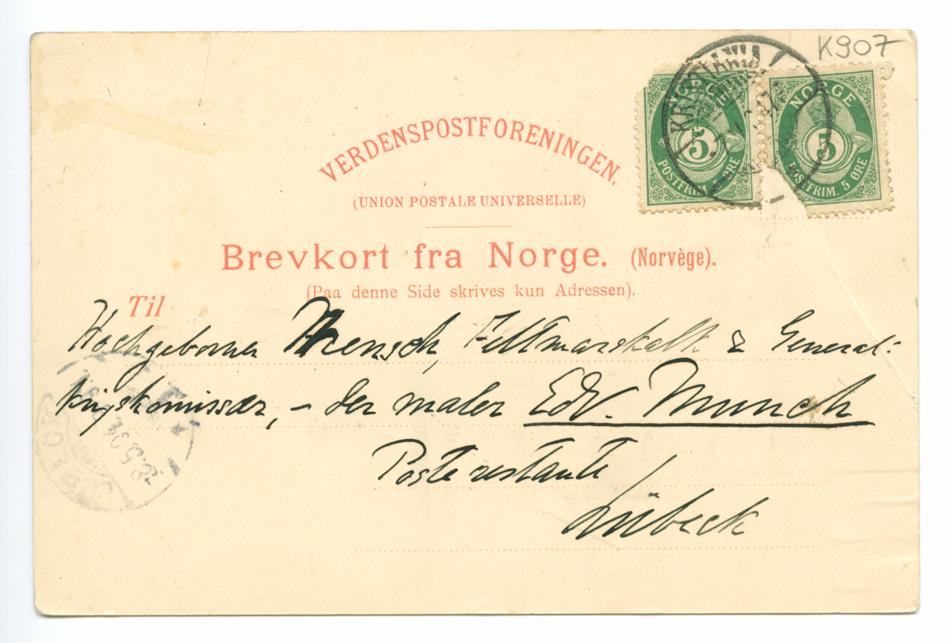 K907
NORGE
5
POSTFRIM. 5 ØRE
NORGE
5
POSTFRIM. 5 ØRE
KRISTIANIA
VERDENSPOSTFORENINGEN.
(UNION POSTALE UNIVERSELLE)
Brevkort fra Norge. (Norvège).
(Paa denne Side skrives kun Adressen).
Til
Hochgeborner Mensch, Feltmarskalk & General-
krigskomissær, – der maler Edv. Munch
Poste restante
Lübeck
-8.5.04